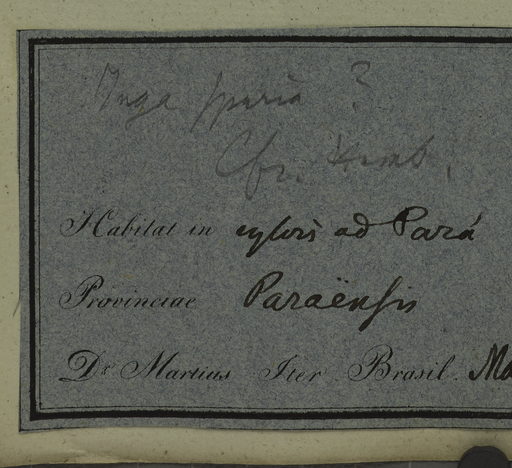 Inga spuria ?
Cfr. Humb.
Habitat in sylvis ad Pará
Provinciae Paraënsis
Dr. Martius Iter Brasil.